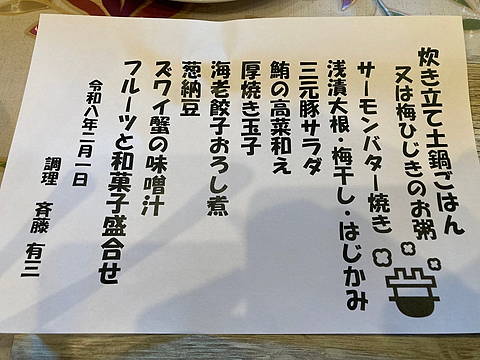 炊き立て土鍋ごはん
又は梅ひじきのお粥
サーモンバター焼き
浅漬大根・梅干し・はじかみ
三元豚サラダ
鮪の高菜和え
厚焼き玉子
海老餃子おろし煮
葱納豆
ズワイ蟹の味噌汁
フルーツと和菓子盛合せ
令和八年二月一日
調理 斉藤 有三